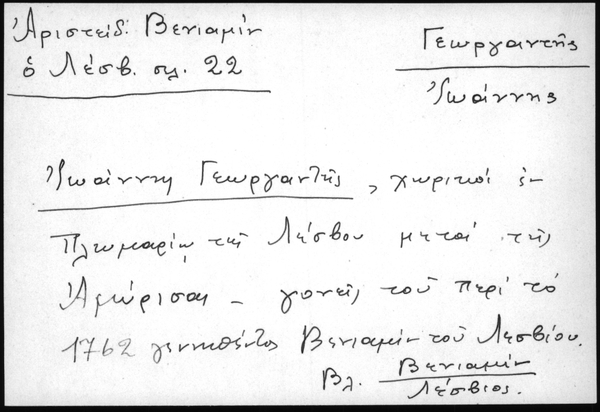 Ἀριστείδ. Βενιαμὶν
ὁ Λέσβ. σελ. 22
Γεωργαντῆς
Ἰωάννης
Ἰωάννης Γεωργαντῆς, χωρικοὶ ἐν
Πλωμαρίῳ τῆς Λέσβου μετὰ τῆς
– γονεῖς τοῦ περὶ τὸ
1762 γεννηθέντος Βενιαμὶν τοῦ Λεσβίου.
Βλ. Βενιαμὶν
Λέσβιος.